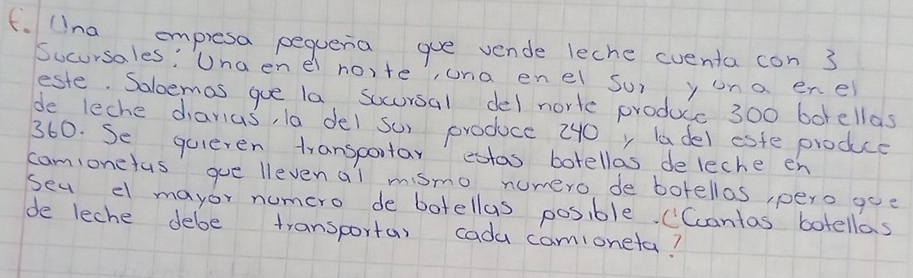 f. Una empresa pequeña que vende leche cuenta con 3
Sucursales: Una en el norte, una en el Sur y una en el
este. Sabemos que la sucursal del norte produce 300 botellas
de leche diarias, la del sur produce 240 y la del este produce
360. Se quieren transportar estas botellas de leche en
camionetas que lleven al mismo numero de botellas, pero que
Sea el mayor numero de botellas posible. ¿Cuantas botellas
de leche debe transportar cada camioneta?